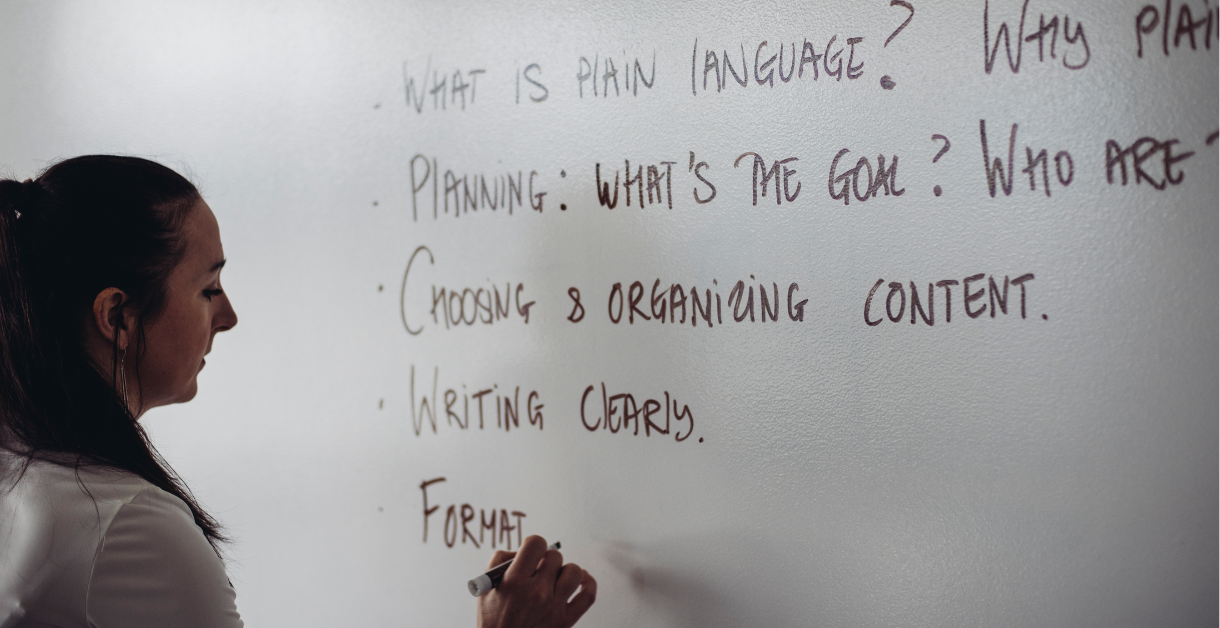 · WHAT IS PLAIN LANGUAGE? WHY PLAI
· PLANNING: WHAT'S THE GOAL? WHO ARE
· CHOOSING & ORGANIZING CONTENT.
· WRITING CLEARLY.
· FORMAT